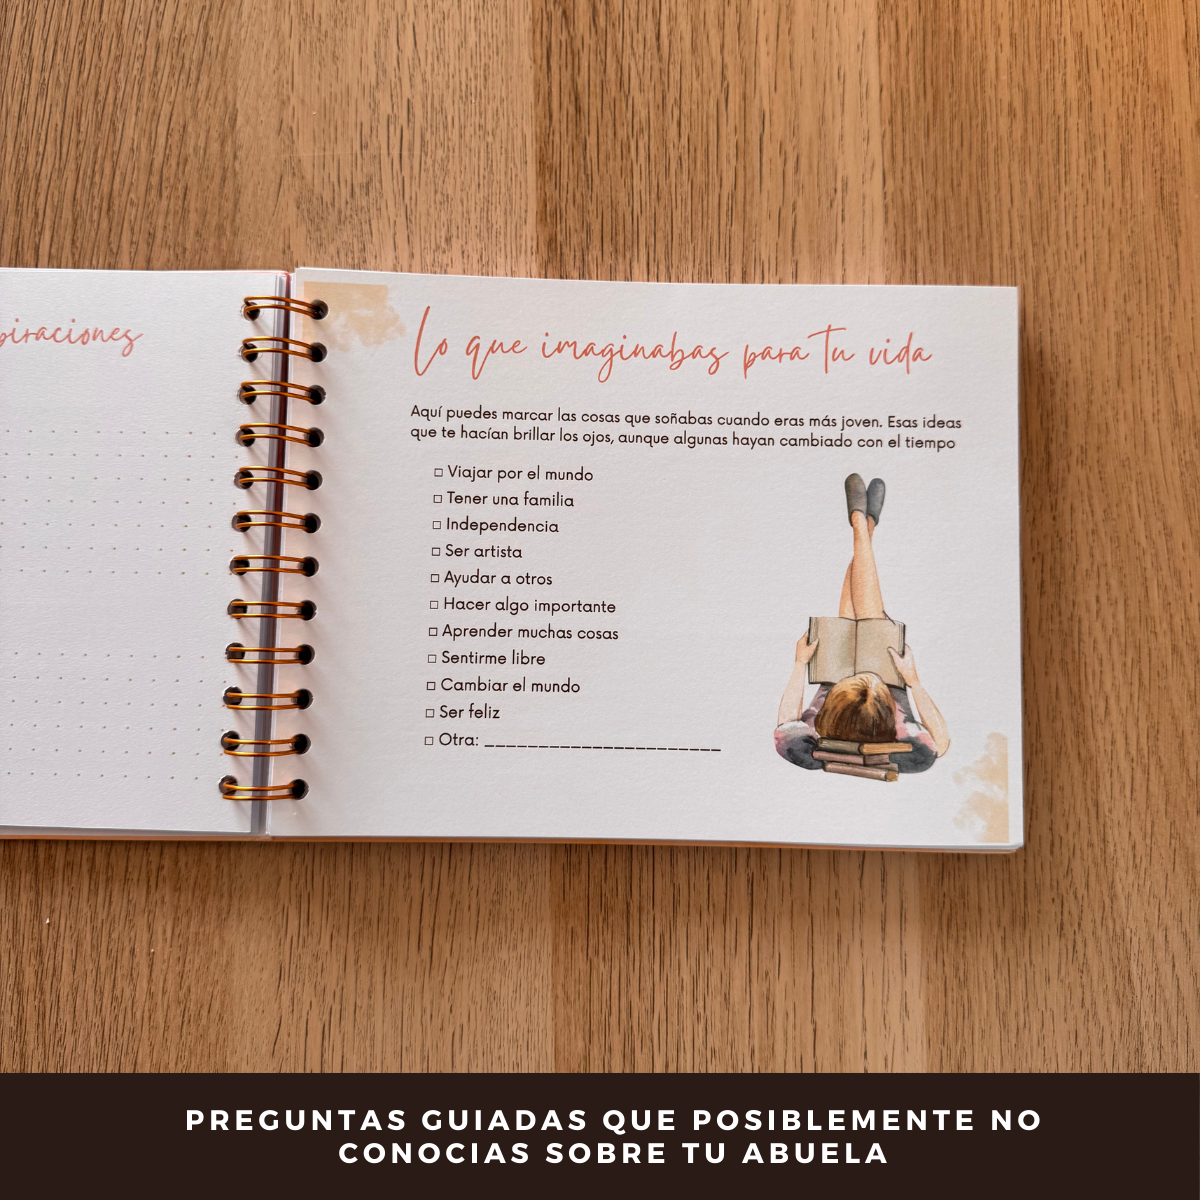 piraciones
Lo que imaginabas para Tu vida
Aquí puedes marcar las cosas que soñabas cuando eras más joven. Esas ideas
que te hacían brillar los ojos, aunque algunas hayan cambiado con el tiempo
□ Viajar por el mundo
□ Tener una familia
□ Independencia
□ Ser artista
□ Ayudar a otros
□ Hacer algo importante
□ Aprender muchas cosas
□ Sentirme libre
□ Cambiar el mundo
□ Ser feliz
□ Otra: ______________________
PREGUNTAS GUIADAS QUE POSIBLEMENTE NO
CONOCIAS SOBRE TU ABUELA